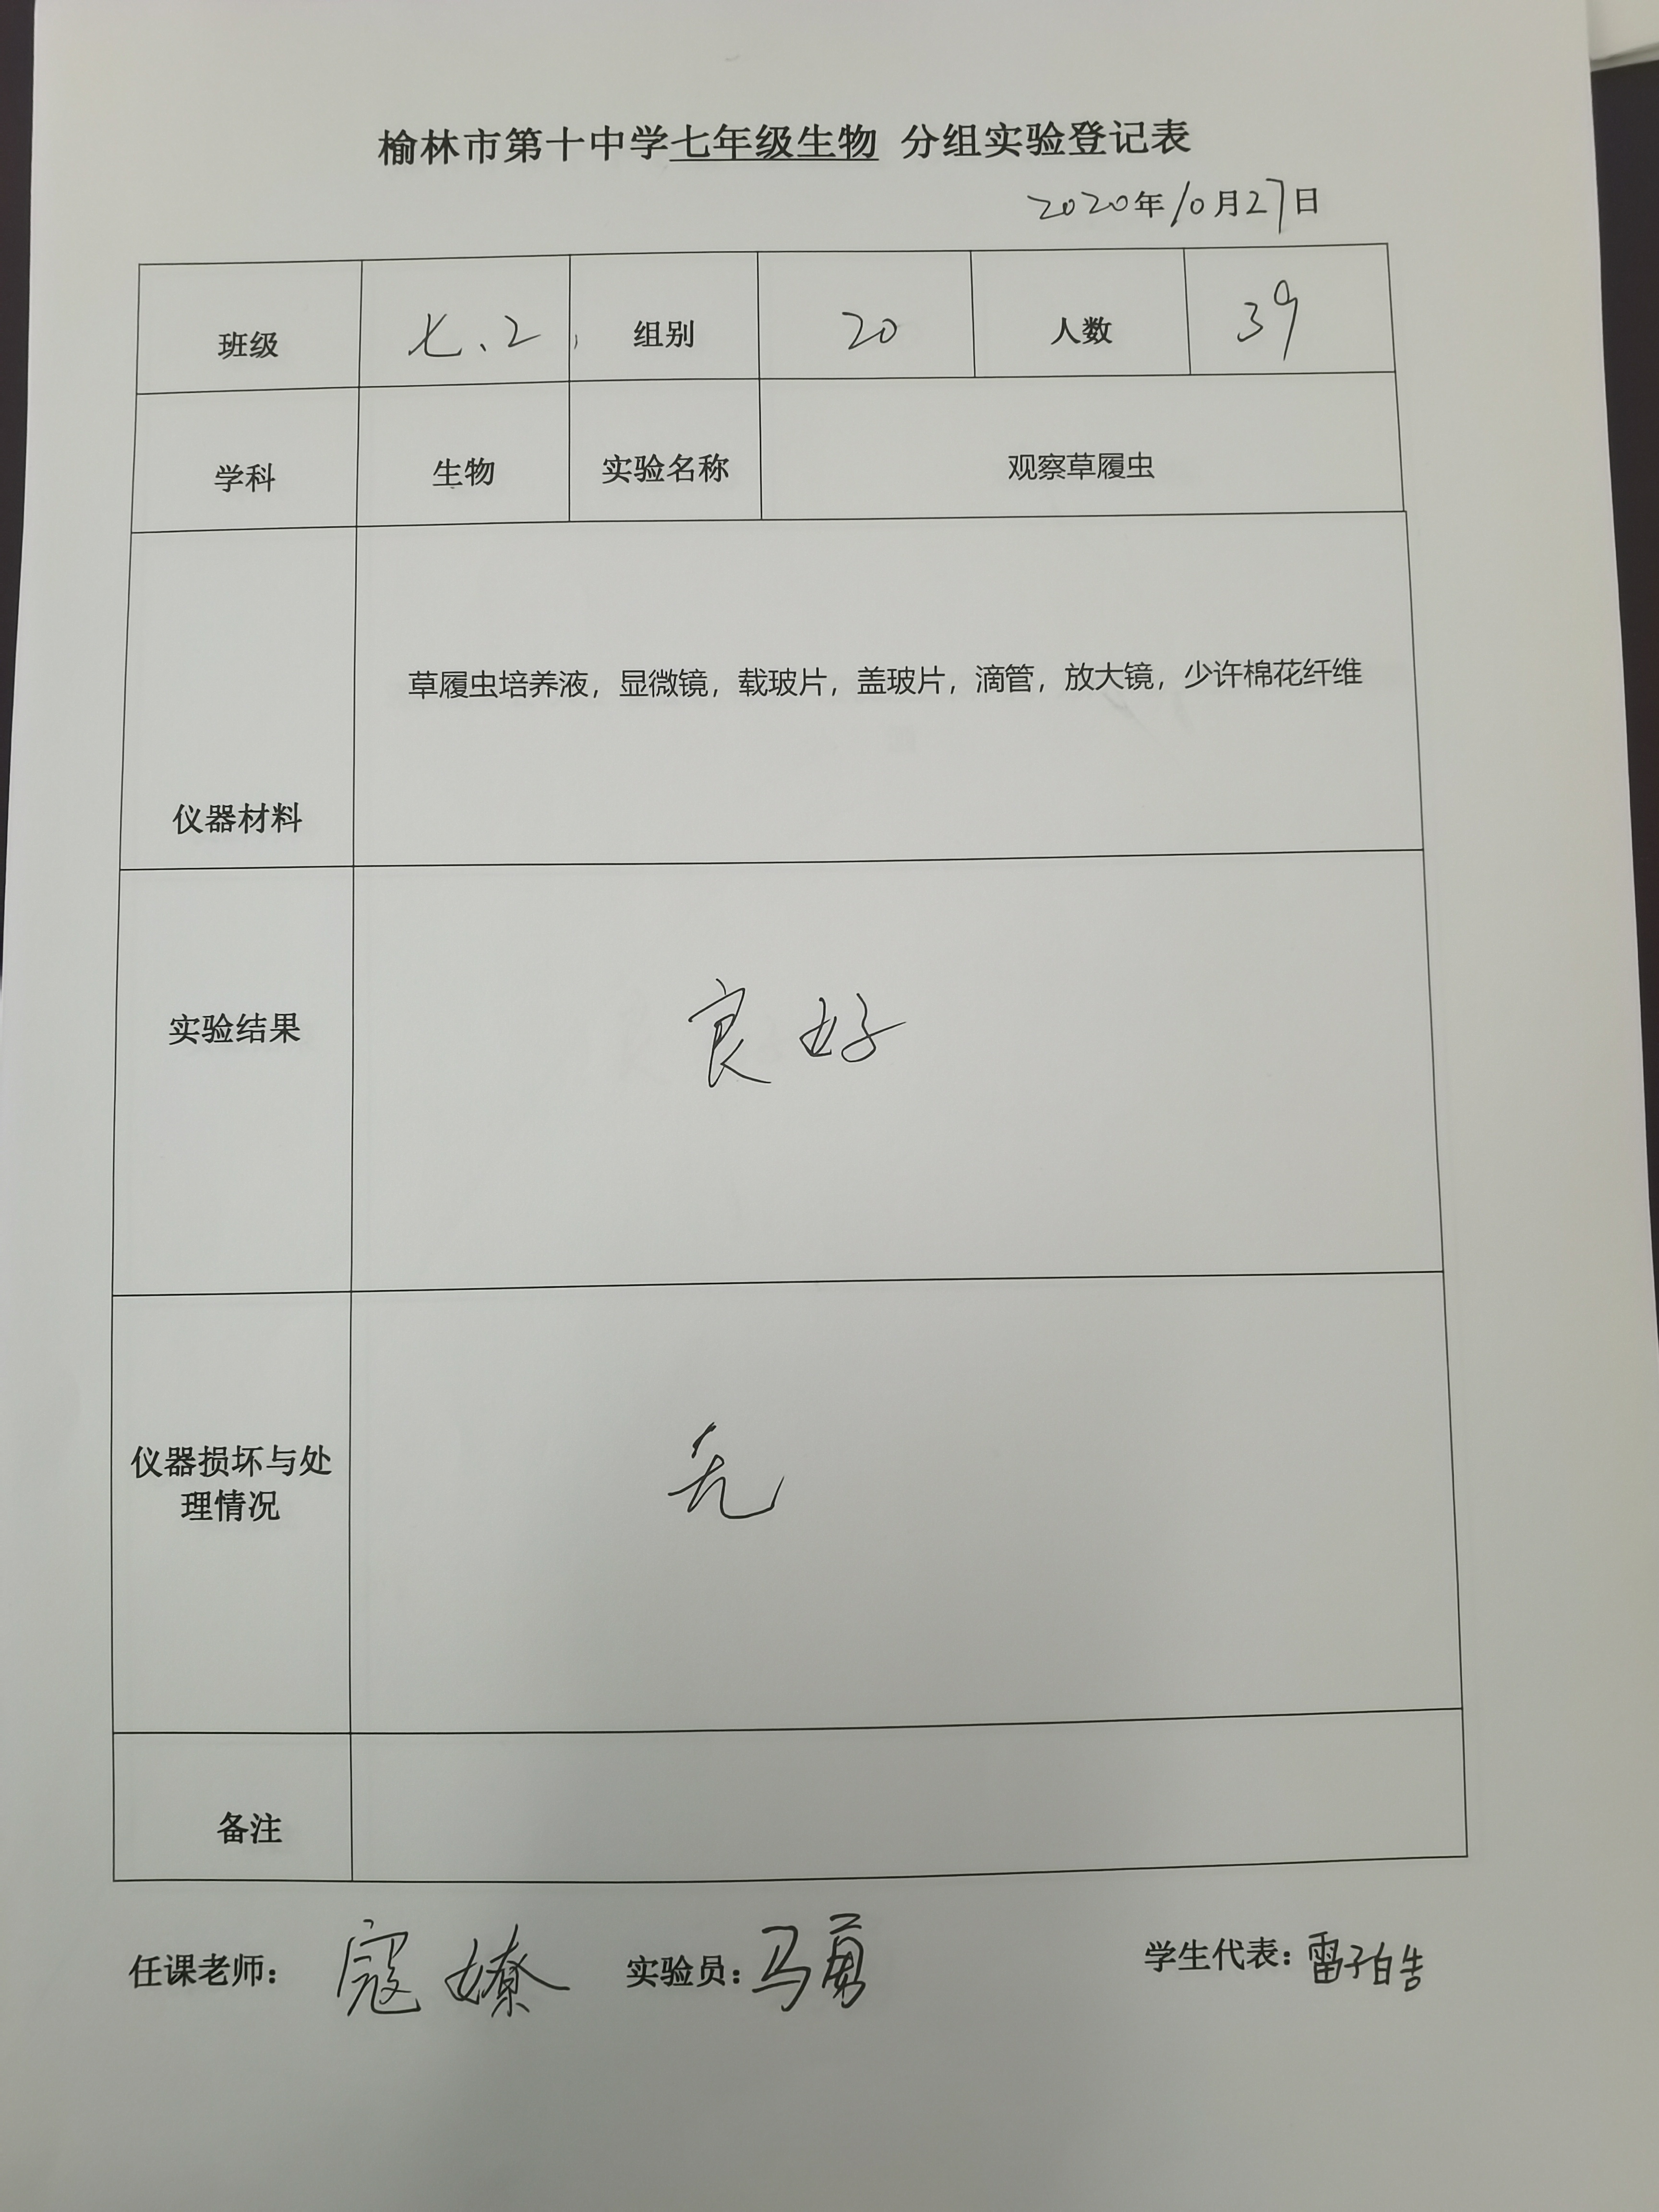 榆林市第十中学七年级生物 分组实验登记表
2020年10月27日
班级 七、2 组别 20 人数 39
学科 生物 实验名称 观察草履虫
仪器材料 草履虫培养液，显微镜，载玻片，盖玻片，滴管，放大镜，少许棉花纤维
实验结果 良好
仪器损坏与处
理情况 无
备注
任课老师： 寇嫽 实验员：马勇 学生代表：雷子皓